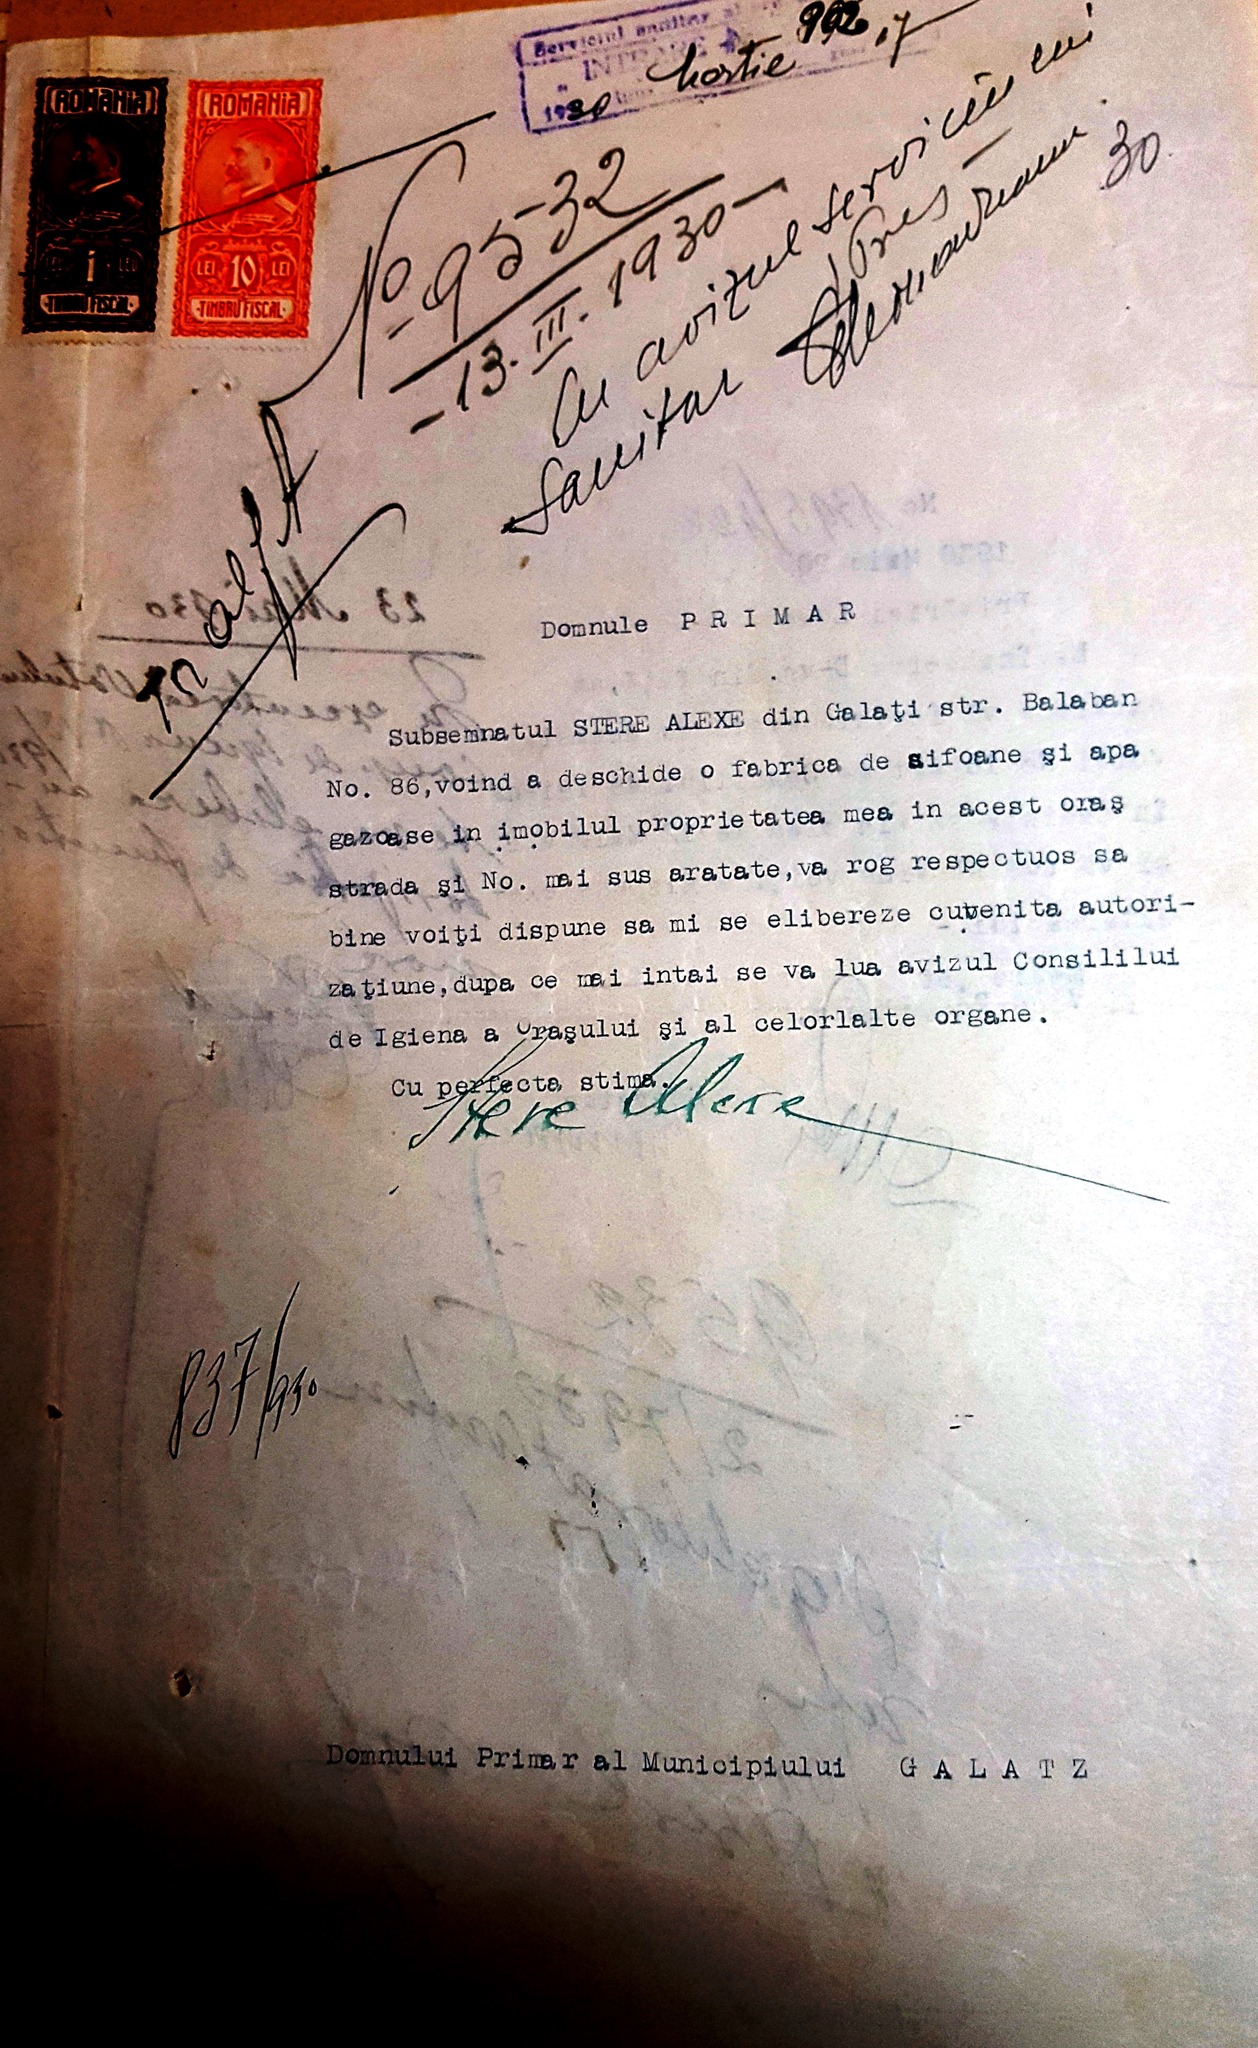 Serviciul sanitar al
INTRARE
1930 Martie 17
ROMANIA
LEI 1 LEU
TIMBRU FISCAL
ROMANIA
LEI 10 LEI
·TIMBRU FISCAL·
No 9532
13. III. 1930
Cu avizul serviciului
Sanitar
30
Domnule P R I M A R
Subsemnatul STERE ALEXE din Galaţi str. Balaban
No. 86,voind a deschide o fabrica de sifoane şi apa
gazoase in imobilul proprietatea mea in acest oraş
strada şi No. mai sus aratate,va rog respectuos sa
bine voiţi dispune sa mi se elibereze cuvenita autori-
zaţiune,dupa ce mai intai se va lua avizul Consililui
de Igiena a Oraşului şi al celorlalte organe.
Cu perfecta stima.
Stere Alexe
837/930
Domnului Primar al Municipiului G A L A T Z